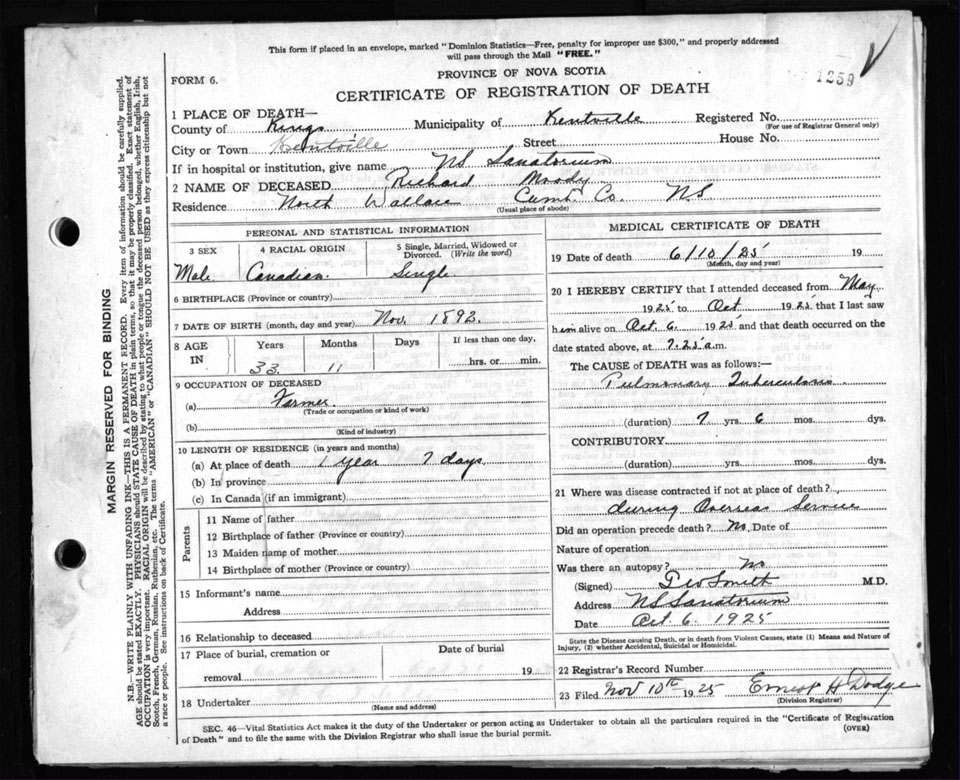 This form if placed in an envelope, marked "Dominion Statistics—Free, penalty for improper use $300," and properly addressed
will pass through the Mail "FREE."
1259
FORM 6.
PROVINCE OF NOVA SCOTIA
CERTIFICATE OF REGISTRATION OF DEATH
1 PLACE OF DEATH—
County of Kings Municipality of Kentville Registered No.
(For use of Registrar General only)
City or Town Kentville Street House No.
If in hospital or institution, give name NS Sanatorium
2 NAME OF DECEASED Richard Moody
Residence North Wallace Cumb. Co. NS
(Usual place of abode)
PERSONAL AND STATISTICAL INFORMATION
3 SEX 4 RACIAL ORIGIN 5 Single, Married, Widowed or Divorced. (Write the word)
Male Canadian Single
6 BIRTHPLACE (Province or country)
7 DATE OF BIRTH (month, day and year) Nov. 1892.
8 AGE IN Years Months Days If less than one day,
33 11 hrs. or min.
9 OCCUPATION OF DECEASED
(a) Farmer
(Trade or occupation or kind of work)
(b)
(Kind of industry)
10 LENGTH OF RESIDENCE (in years and months)
(a) At place of death 1 year 7 days
(b) In province
(c) In Canada (if an immigrant)
Parents
11 Name of father
12 Birthplace of father (Province or country)
13 Maiden name of mother
14 Birthplace of mother (Province or country)
15 Informant's name
Address
16 Relationship to deceased
17 Place of burial, cremation or Date of burial
removal 19
18 Undertaker
(Name and address)
MEDICAL CERTIFICATE OF DEATH
19 Date of death 6/10/25 19
(Month, day and year)
20 I HEREBY CERTIFY that I attended deceased from May
1925 to Oct 1925 that I last saw
him alive on Oct. 6 1925 and that death occurred on the
date stated above, at 7.25 a.m.
The CAUSE OF DEATH was as follows:—
Pulmonary Tuberculosis
(duration) 7 yrs. 6 mos. dys.
CONTRIBUTORY
(duration) yrs. mos. dys.
21 Where was disease contracted if not at place of death?
during Overseas Service
Did an operation precede death? No Date of
Nature of operation
Was there an autopsy? No
(Signed) Smith M.D.
Address NS Sanatorium
Date Oct. 6 1925
State the Disease causing Death, or in death from Violent Causes, state (1) Means and Nature of
Injury, (2) whether Accidental, Suicidal or Homicidal.
22 Registrar's Record Number
23 Filed Nov 10th 1925 Ernest H Dodge
(Division Registrar)
SEC. 46—Vital Statistics Act makes it the duty of the Undertaker or person acting as Undertaker to obtain all the particulars required in the "Certificate of Registration
of Death" and to file the same with the Division Registrar who shall issue the burial permit. (OVER)
MARGIN RESERVED FOR BINDING
N.B.—WRITE PLAINLY WITH UNFADING INK—THIS IS A PERMANENT RECORD. Every item of information should be carefully supplied.
AGE should be stated EXACTLY. PHYSICIANS should STATE CAUSE OF DEATH in plain terms, so that it may be properly classified. Exact statement of
OCCUPATION is very important. RACIAL ORIGIN will be described by stating to what people or tongue the deceased person belonged, whether English, Irish,
Scotch, French, German, Russian, Ruthenian, etc. The terms "AMERICAN" or "CANADIAN" SHOULD NOT BE USED as they express citizenship but not
a race or people. See instructions on back of Certificate.